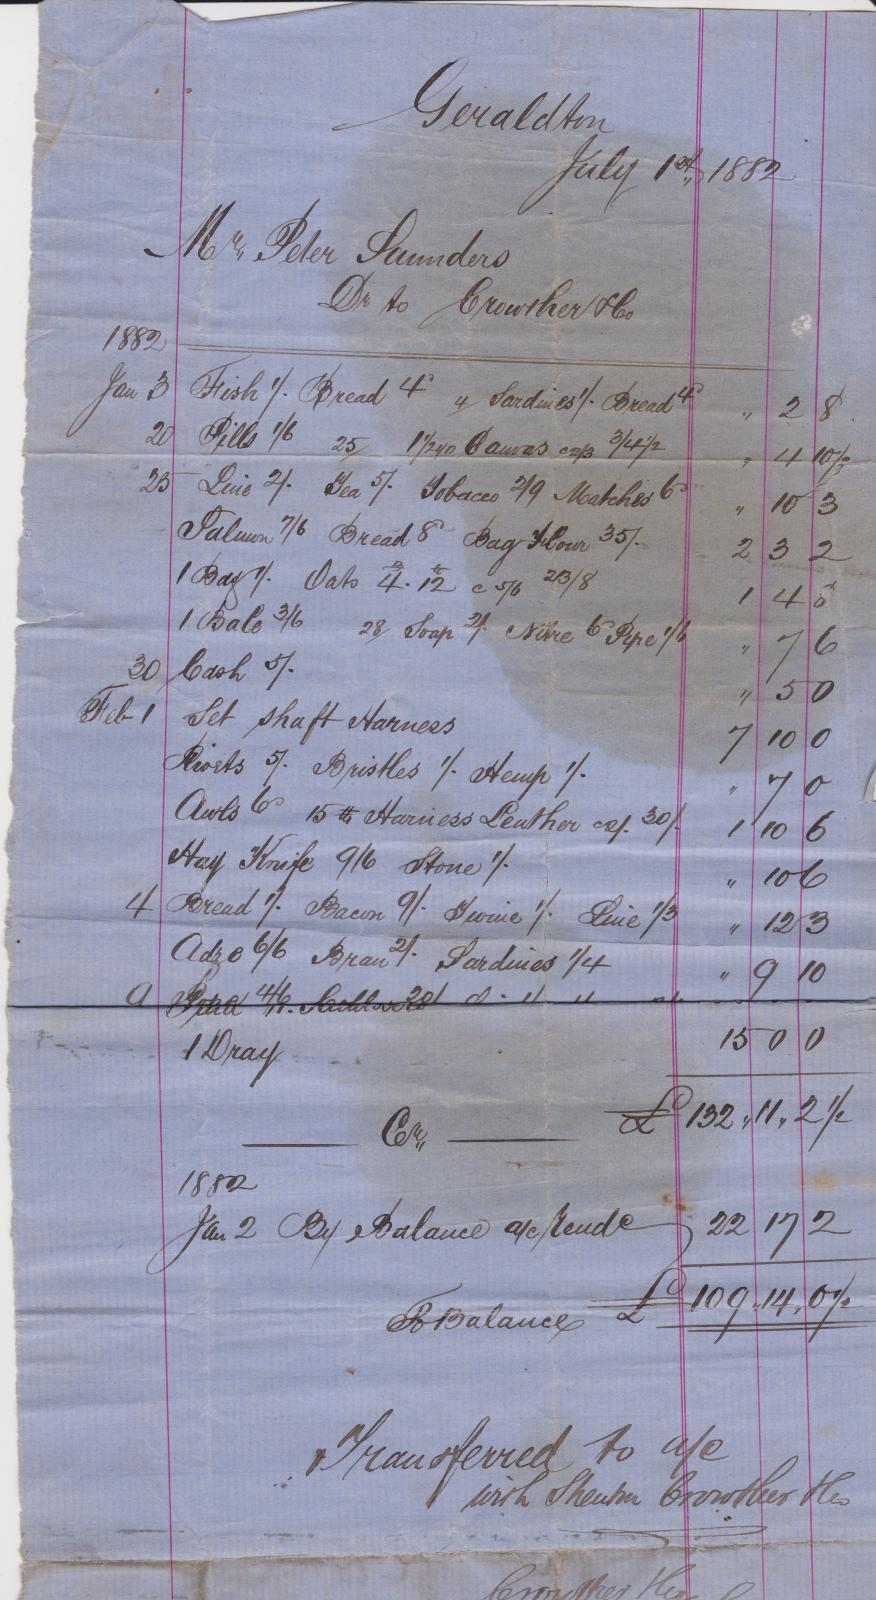 Geraldton
July 1st, 1882
Mr, Peter Saunders
Dr to Crowther & Co
1882
Jan 3 Fish 1/. Bread 4d 4/ Sardines 1/. Bread 4d " 2 8
20 Pills 1/6 25/ 1 1/2 yds Canvas 3/4 1/2 " 4 10 1/2
25 Line 2/. Tea 5/. Tobacco 2/9 Matches 6d " 10 3
Salmon 7/6 Bread 8d Bag Flour 35/. 2 3 2
1 Bag 1/. Oats 4. 12 c 5/6 23/8 1 4 8
1 Bale 3/6 28/ Soap 2/. Nitre 6d Pipe 1/6 " 7 6
30 Cash 5/. " 5 0
Feb 1 Set shaft Harness 7 10 0
Rivets 5/. Bristles 1/. Hemp 1/. " 7 0
Awls 6d 15 lb Harness Leather 30/. 1 10 6
Hay Knife 9/6 Stone 1/. " 10 6
4 Bread 1/. Bacon 9/. Twine 1/. Line 1/3 " 12 3
Adze 6/6 Bran 2/. Sardines 1/4 " 9 10
9
1 Dray 15 0 0
£ 132 " 11 " 2 1/2
Cr,,
1882
Jan 2 By Balance a/c 22 17 2
To Balance £ 109 " 14 " 0 1/2
Transferred to a/c
with Shenton Crowther & Co
Crowther & Co